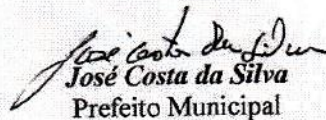 José Costa da Silva
José Costa da Silva
Prefeito Municipal